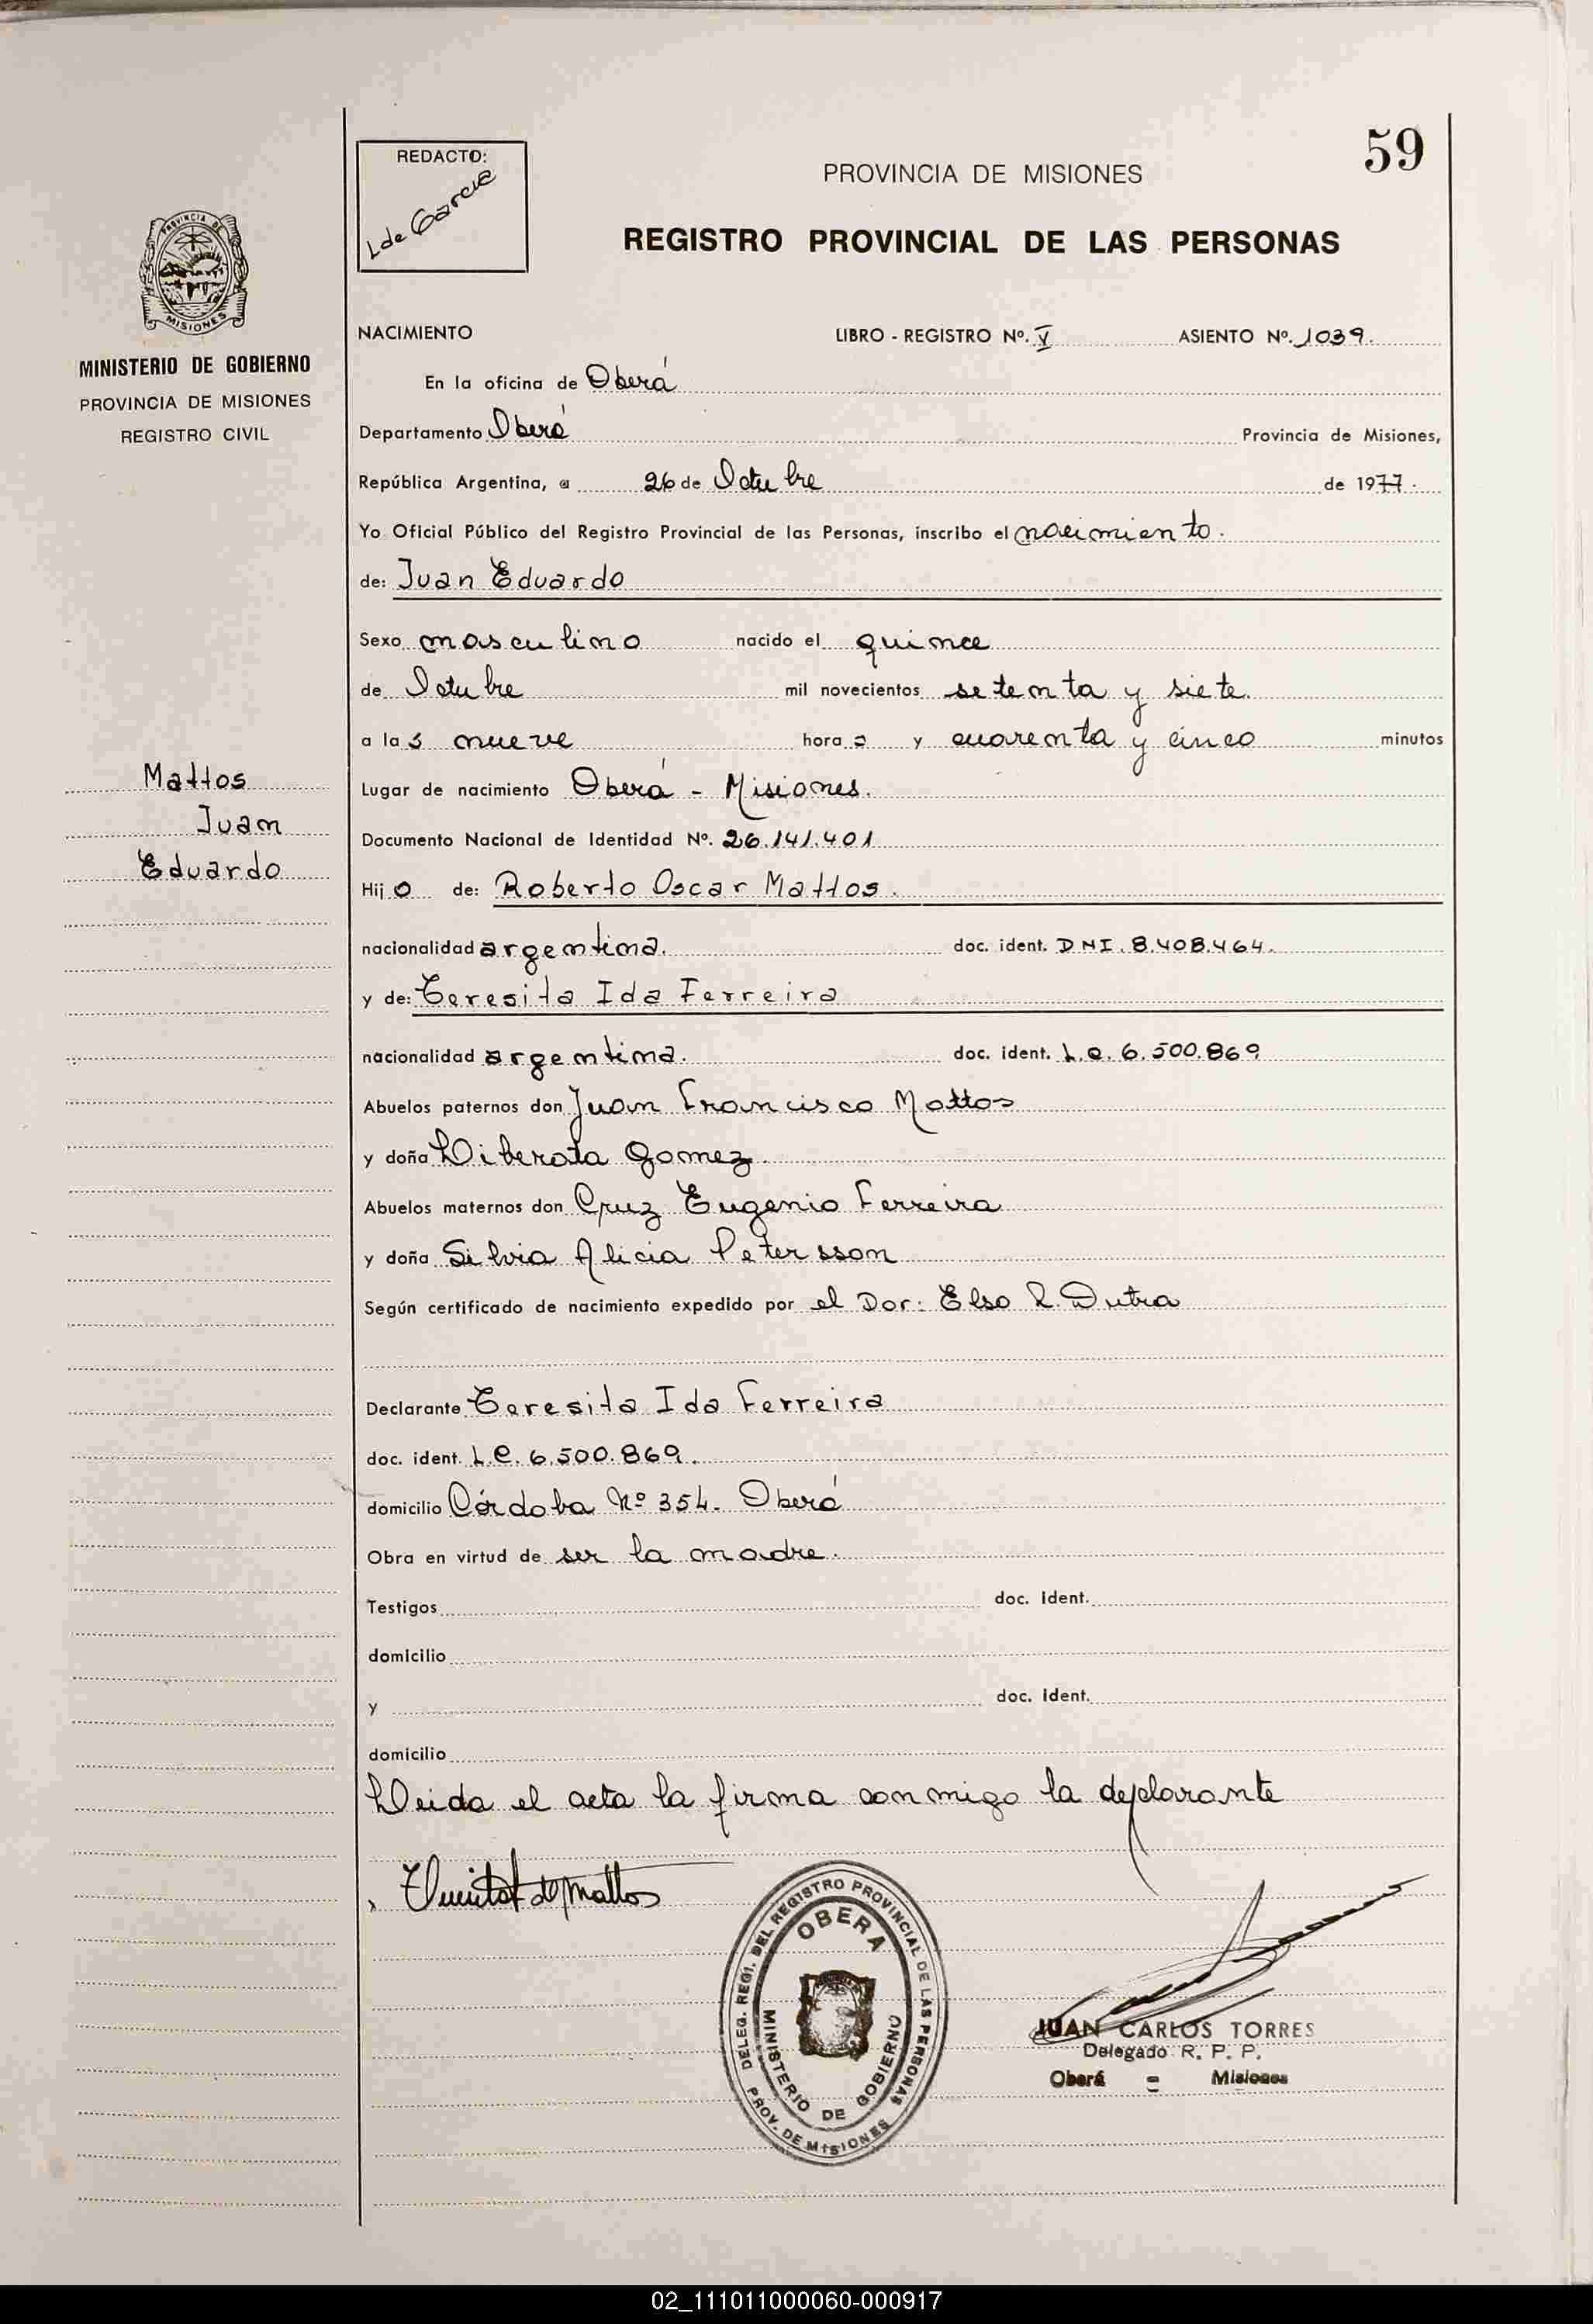 59
REDACTO:
L de Garcia
PROVINCIA DE MISIONES
REGISTRO PROVINCIAL DE LAS PERSONAS
PROVINCIA DE
MISIONES
MINISTERIO DE GOBIERNO
PROVINCIA DE MISIONES
REGISTRO CIVIL
NACIMIENTO LIBRO - REGISTRO Nº. V ASIENTO Nº. 1039.
En la oficina de Oberá
Departamento Oberá Provincia de Misiones,
República Argentina, a 26 de Octubre de 1977.
Yo Oficial Público del Registro Provincial de las Personas, inscribo el nacimiento.
de: Juan Eduardo
Sexo masculino nacido el quince
de Octubre mil novecientos setenta y siete.
a las nueve horas y cuarenta y cinco minutos
Mattos
Juan
Eduardo
Lugar de nacimiento Oberá - Misiones.
Documento Nacional de Identidad Nº. 26.141.401
Hijo de: Roberto Oscar Mattos.
nacionalidad argentina. doc. ident. DNI. 8.408.464.
y de: Teresita Ida Ferreira
nacionalidad argentina. doc. ident. L.C. 6.500.869
Abuelos paternos don Juan Francisco Mattos
y doña Liberata Gomez.
Abuelos maternos don Cruz Eugenio Ferreira
y doña Silvia Alicia Petersson
Según certificado de nacimiento expedido por el Dor: Elso R. Dutra
Declarante Teresita Ida Ferreira
doc. ident. L.C. 6.500.869.
domicilio Córdoba Nº 354. Oberá
Obra en virtud de ser la madre.
Testigos doc. ident.
domicilio
y doc. ident.
domicilio
Leida el acta la firma conmigo la declarante
de Mattos
DELEG. REGI. DEL REGISTRO PROVINCIAL DE LAS PERSONAS
OBERA
MINISTERIO DE GOBIERNO
PROV. DE MISIONES
JUAN CARLOS TORRES
Delegado R. P. P.
Oberá - Misiones
02_111011000060-000917